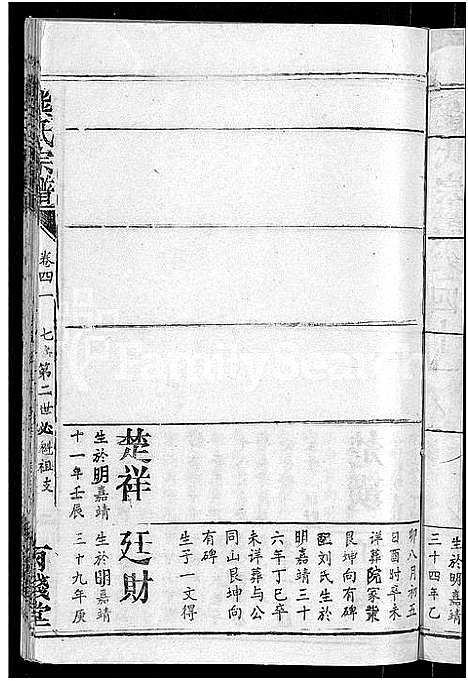 生於明嘉靖
三十四年乙
卯八月初五
日酉時卒未
詳葬院家衆
艮坤向有碑
配刘氏生於
明嘉靖三十
六年丁巳卒
未详葬与公
同山艮坤向
有碑
生子一文得
廷財
生於明嘉靖
三十九年庚
楚祥
生於明嘉靖
十一年壬辰
熊氏宗譜
卷四一
第二世必魁祖支
有錢堂